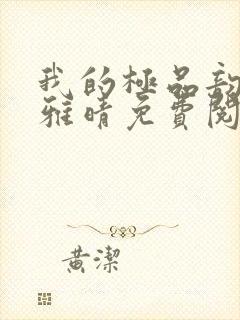 我的極品
雅晴免費閱
黃潔